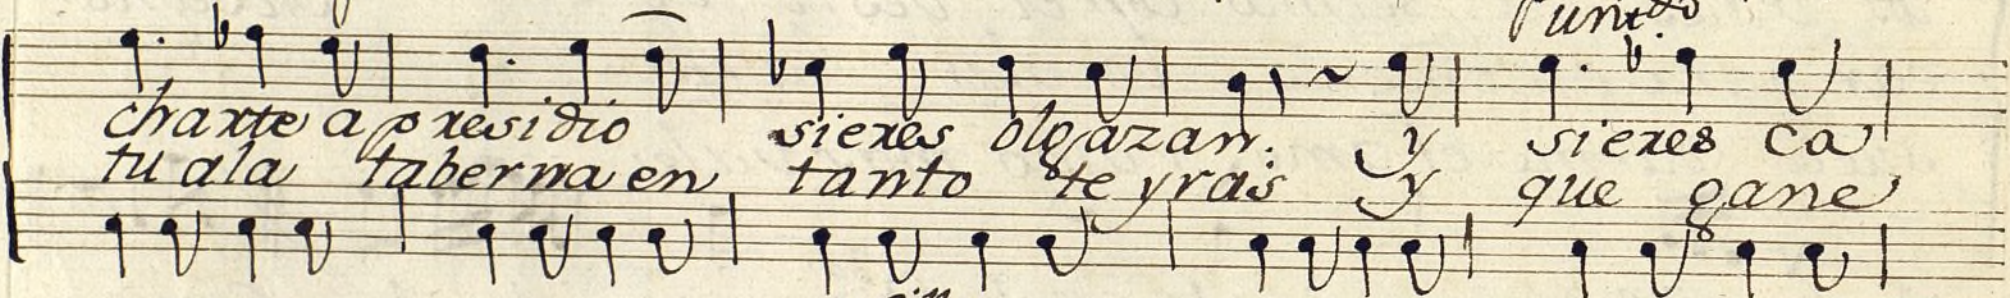 Punt.do
charte a presidio sieres olgazan. y sieres ca
tu ala taberna en tanto te yras y que gane